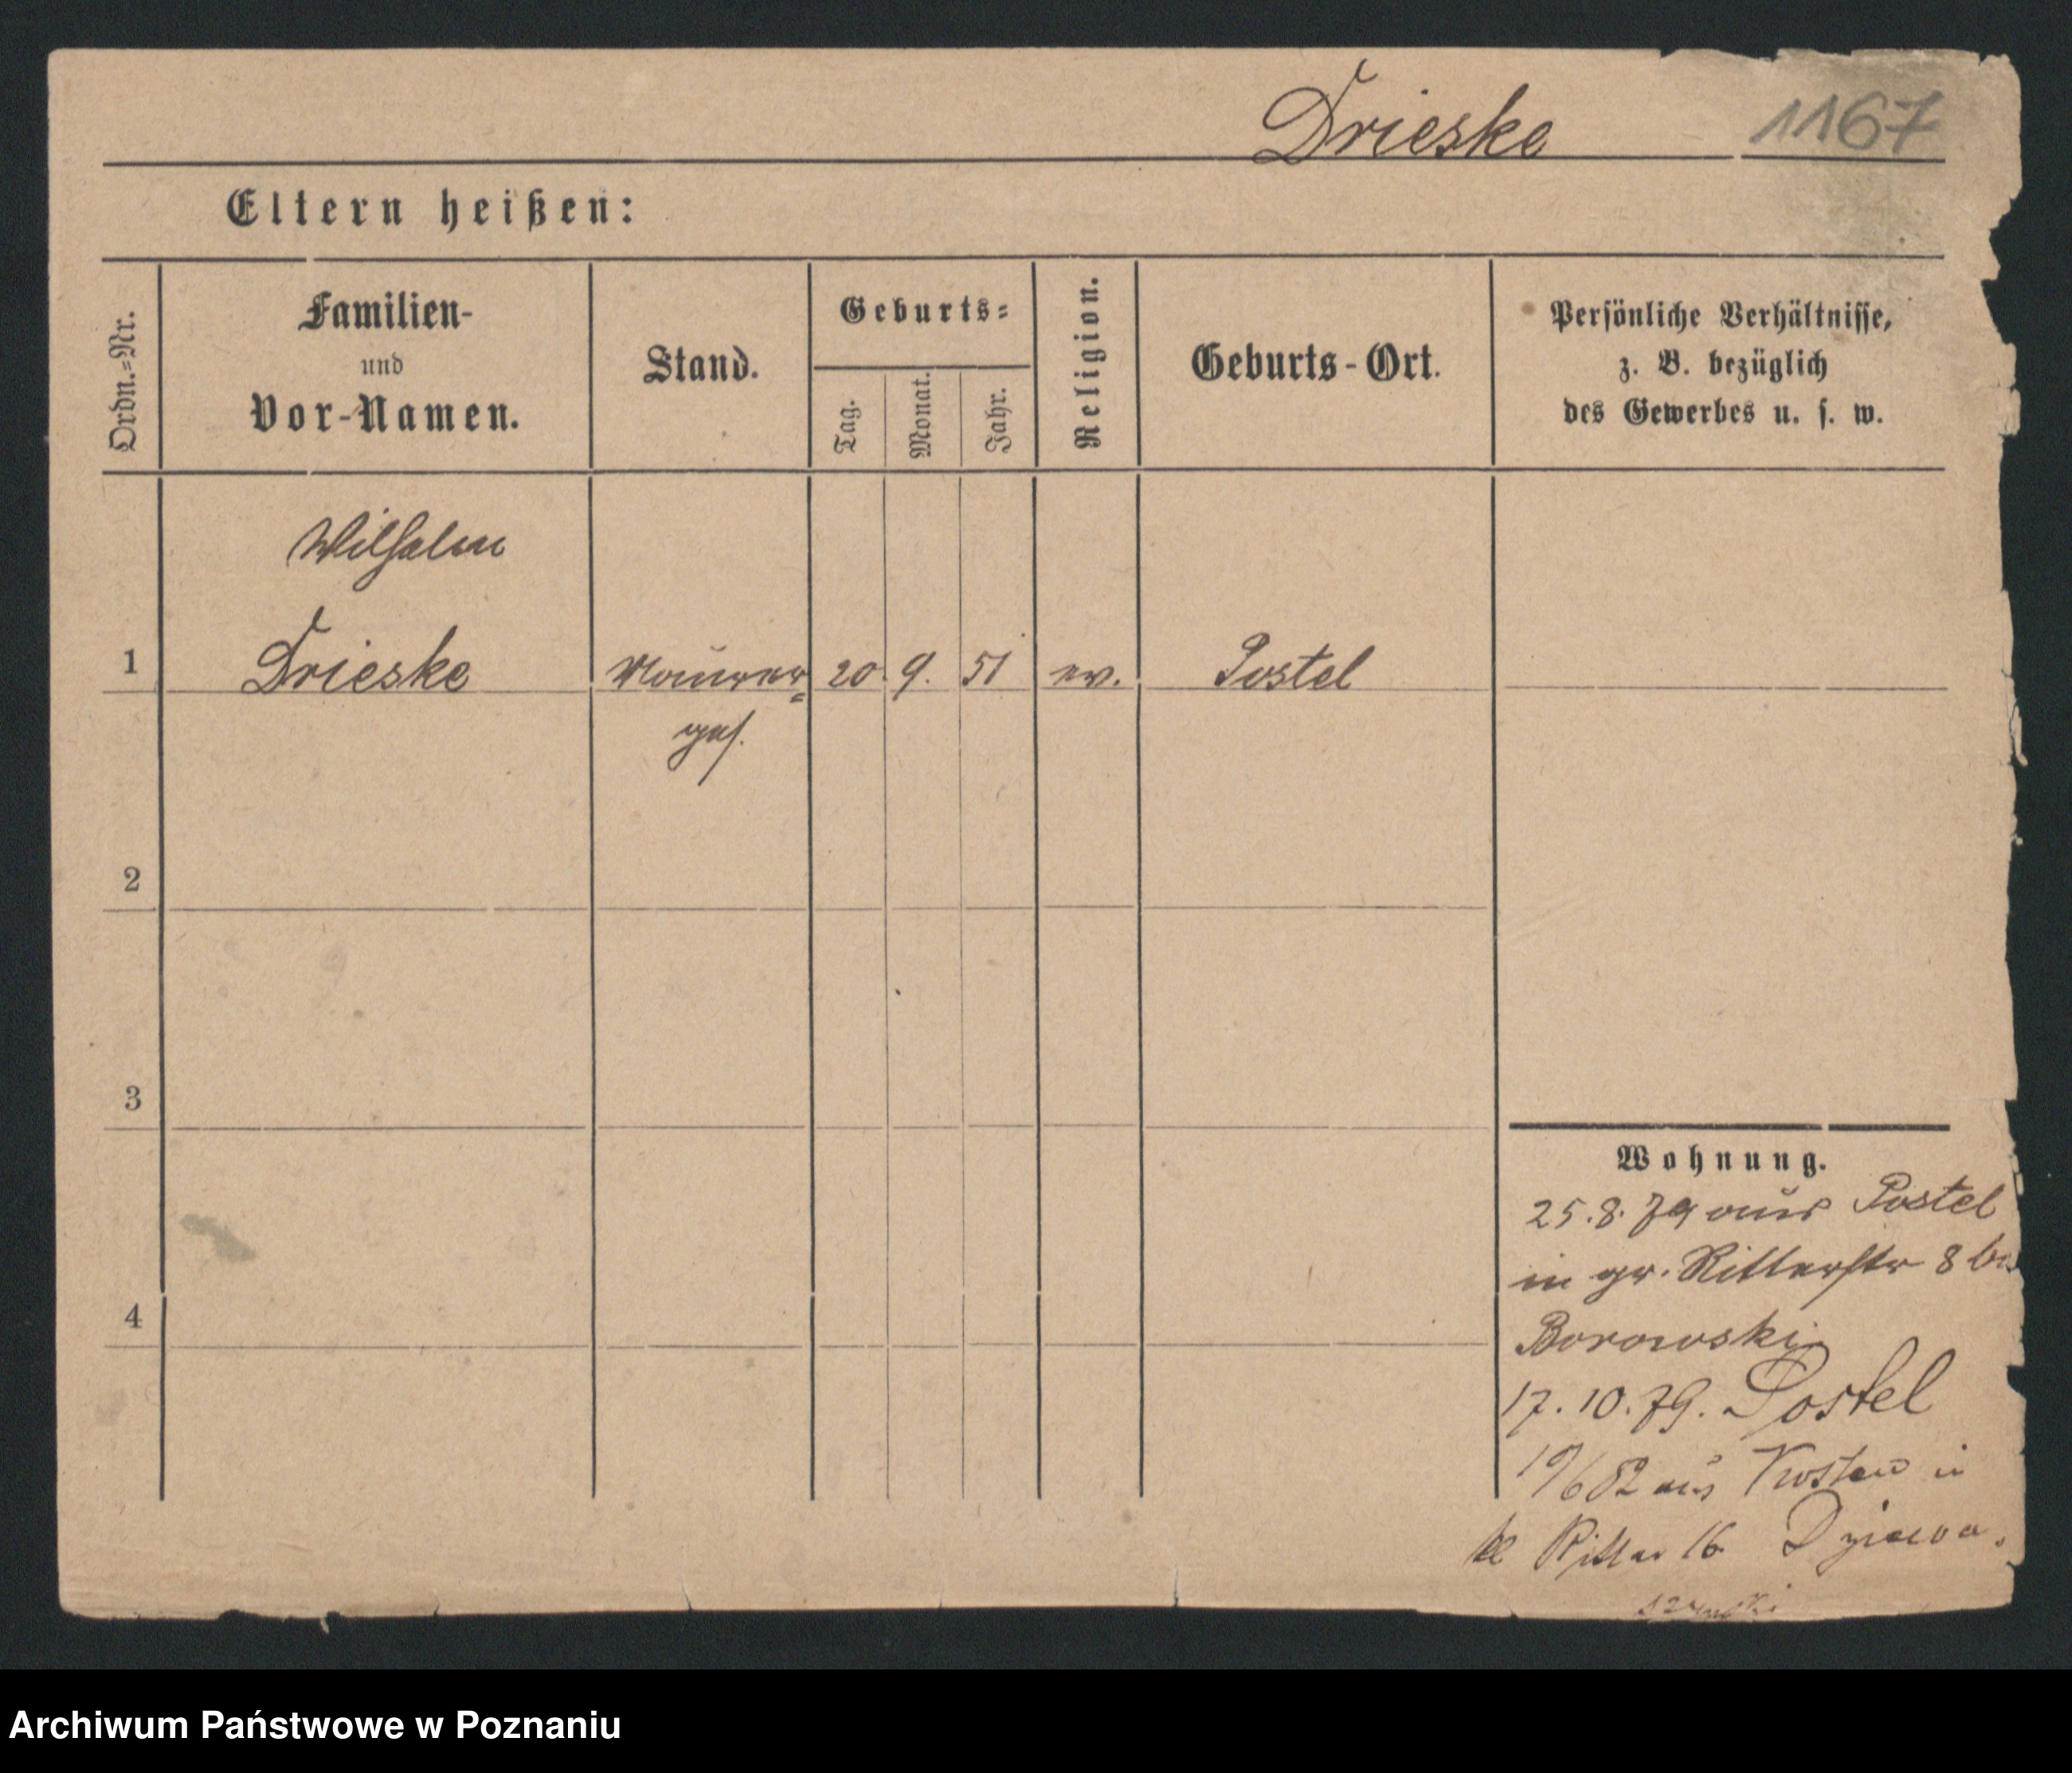 Drieske 1167
Eltern heißen:
Ordn.=Nr.
Familien-
und
Vor-Namen.
Stand.
Geburts=
Tag.
Monat.
Jahr.
Religion.
Geburts-Ort.
Persönliche Verhältnisse,
z. B. bezüglich
des Gewerbes u. s. w.
Wilhelm
1 Drieske Maurer= 20. 9. 51 ev. Postel
ges.
2
3
4
Wohnung.
25.8.79 aus Postel
in gr. Ritterstr 8 bei
Borowski
17.10.79. Postel
19/6 82 aus Kosten in
kl Ritter 16
Archiwum Państwowe w Poznaniu